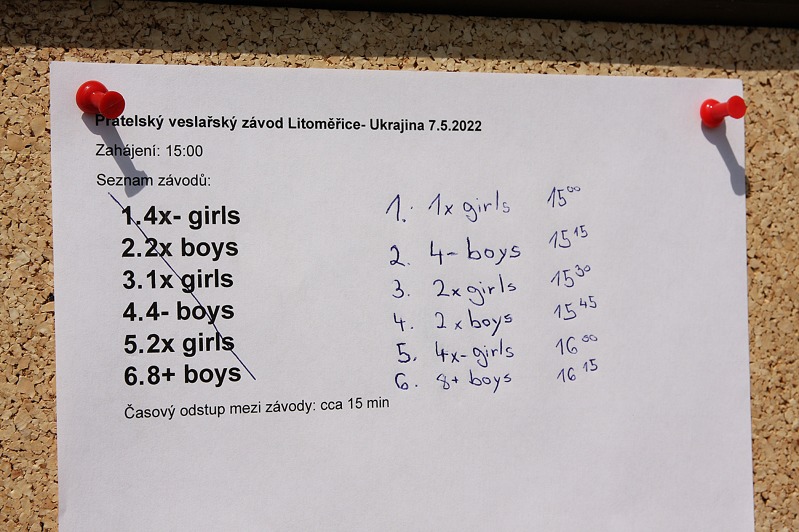 Přátelský veslařský závod Litoměřice- Ukrajina 7.5.2022
Zahájení: 15:00
Seznam závodů:
1.4x- girls
2.2x boys
3.1x girls
4.4- boys
5.2x girls
6.8+ boys
Časový odstup mezi závody: cca 15 min
1. 1x girls 15⁰⁰
2. 4- boys 15¹⁵
3. 2x girls 15³⁰
4. 2x boys 15⁴⁵
5. 4x- girls 16⁰⁰
6. 8+ boys 16¹⁵